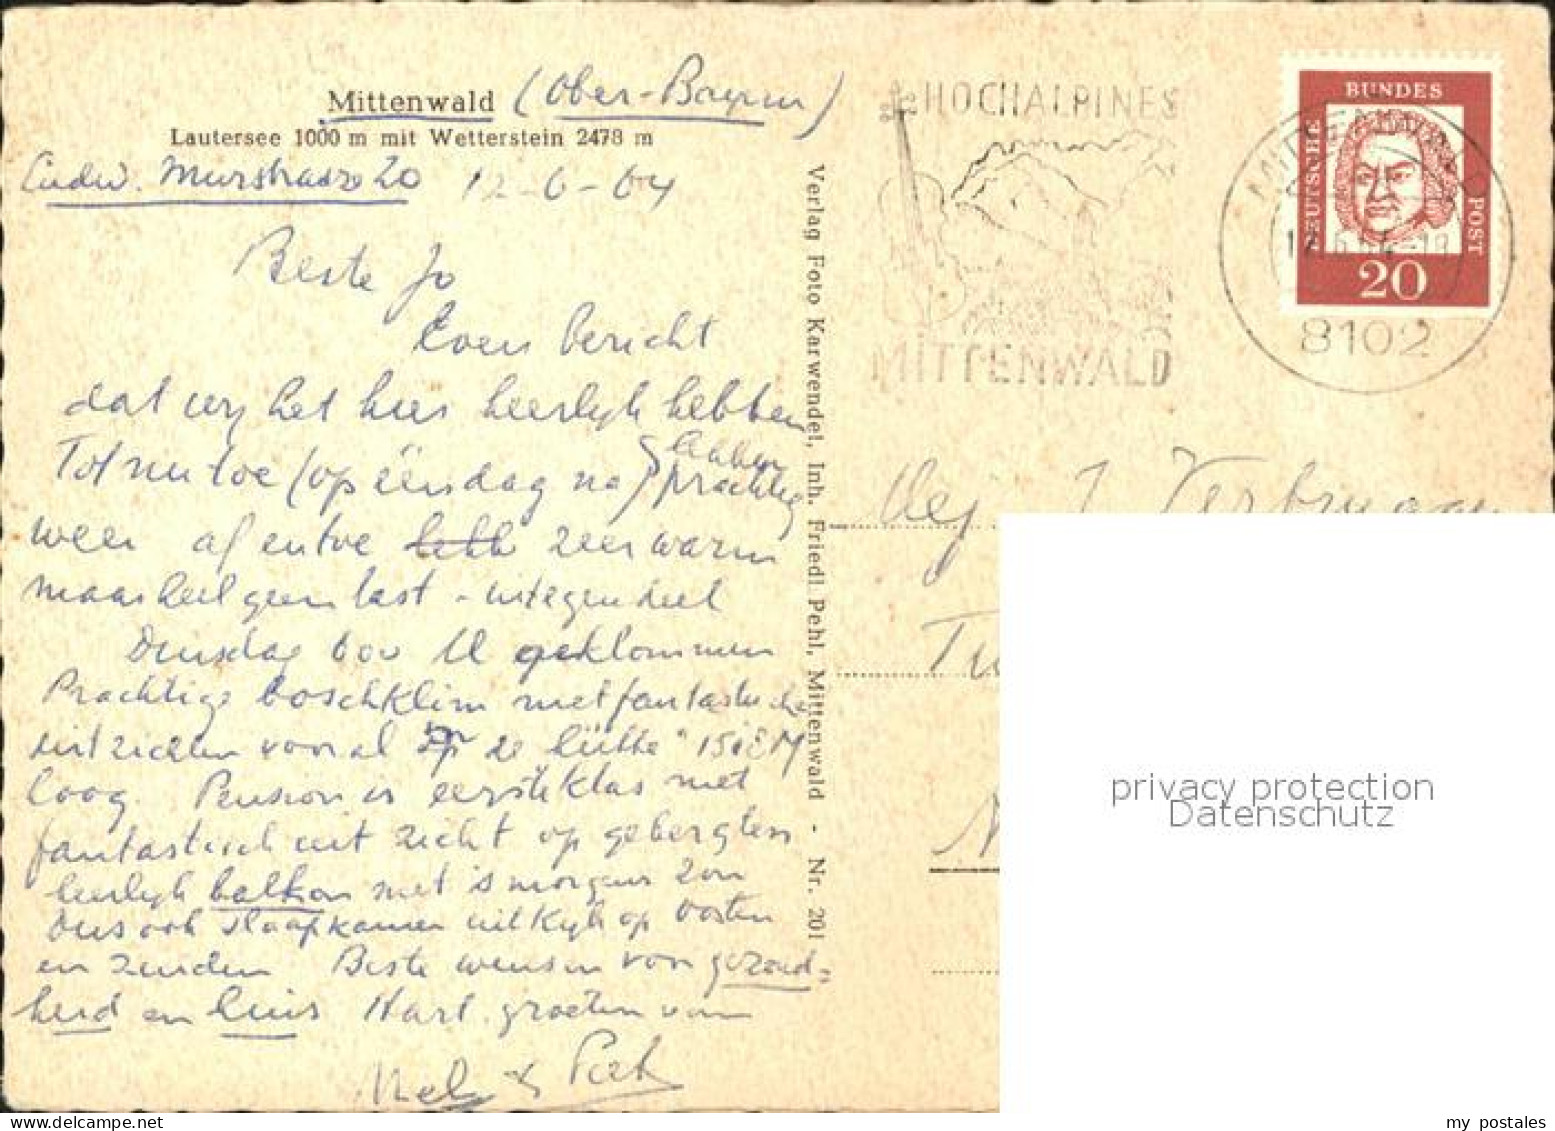 Mittenwald (Ober-Bayern)
Lautersee 1000 m mit Wetterstein 2478 m
Ludw. Murstrasse 20 12-6-64
Beste Jo
Even bericht
dat wij het hier heerlijk hebben
Tot nu toe (op één dag na) hebben prachtig
weer af en toe zeer warm
maar heel geen last - integendeel
Dinsdag geklommen
Prachtige boschklim met fantastische
uitzichten vooral op de hütte 1518 M
hoog. Pension is eersteklas met
fantastisch uitzicht op gebergten
heerlijk balkon met 's morgens zon
Ons ook slaapkamer uitkijk op Oosten
en zuiden Beste wensen voor gezond-
heid en huis Hart. groeten van
Nel & Piet
Verlag Foto Karwendel, Inh. Friedl. Pehl, Mittenwald - Nr. 201
HOCHALPINES
MITTENWALD
MITTENWALD
8102
DEUTSCHE
BUNDES
POST
20
J Verbruggen
privacy protection
Datenschutz
my postales